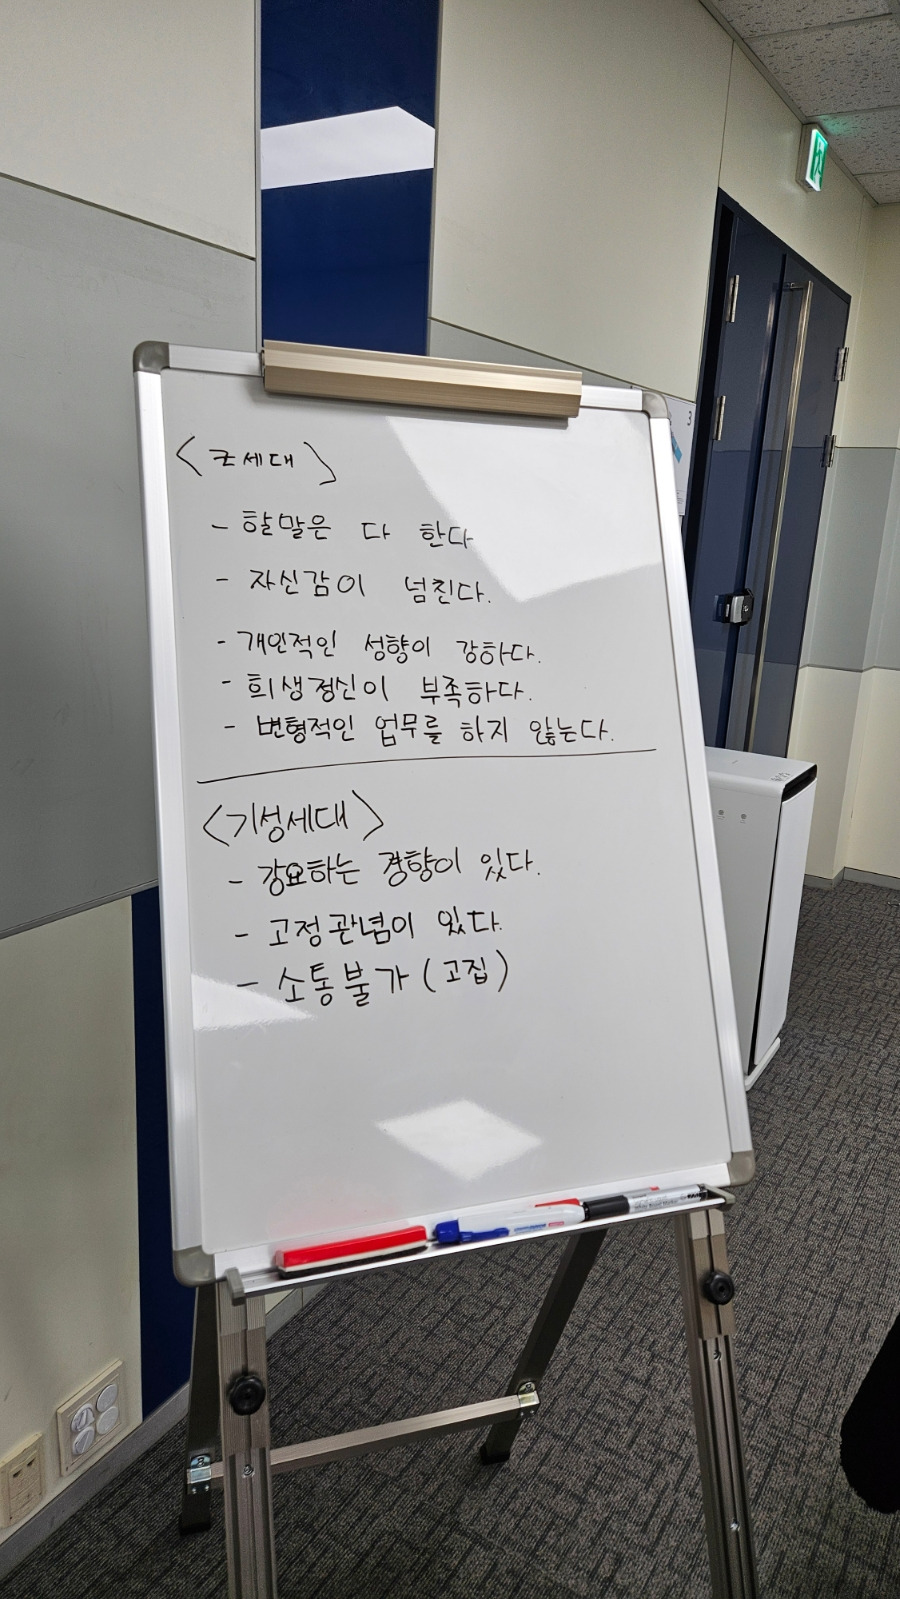 <Z세대>
- 할말은 다 한다
- 자신감이 넘친다.
- 개인적인 성향이 강하다.
- 희생정신이 부족하다.
- 변형적인 업무를 하지 않는다.
<기성세대>
- 강요하는 경향이 있다.
- 고정관념이 있다.
- 소통불가(고집)
3